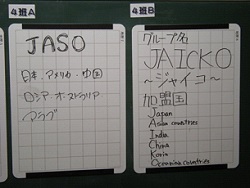 4班A
JASO
日本・アメリカ・中国
ロシア・オーストラリア
アラブ
4班B
グループ名
JAICKO
~ジャイコ~
加盟国
Japan
Asian countries
India
China
Korin
Oceanina countries